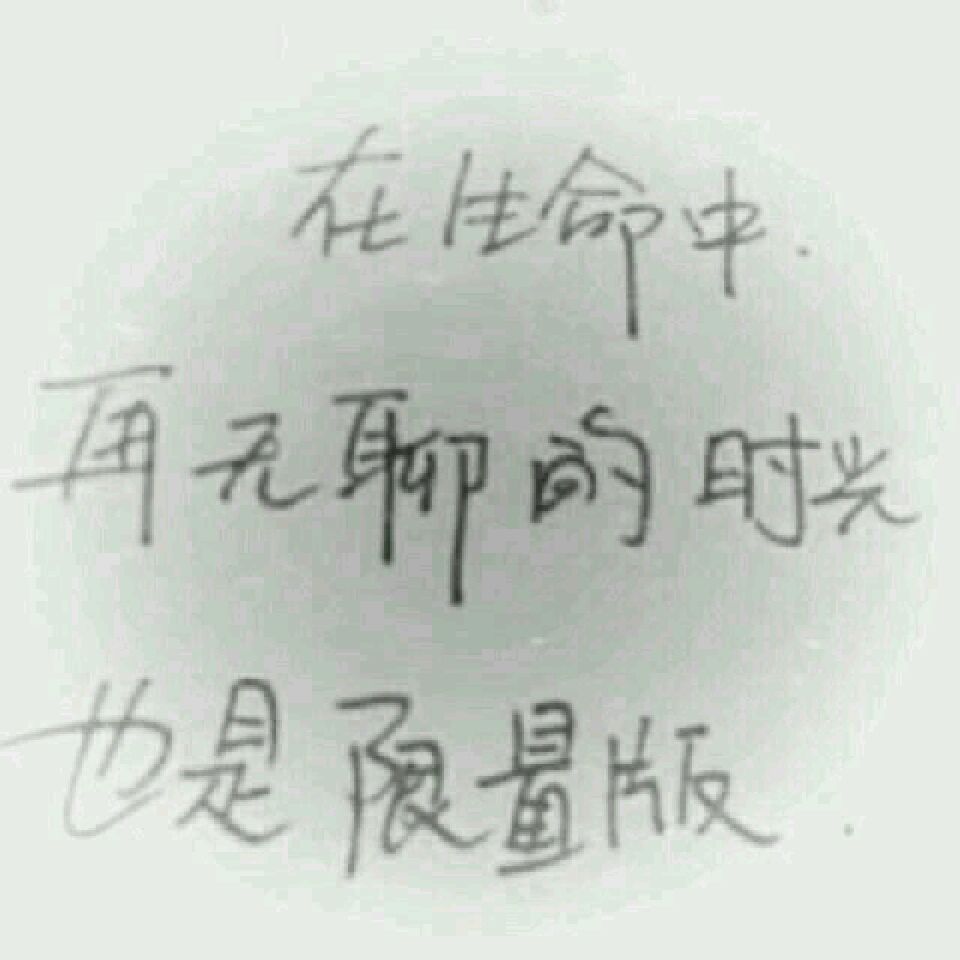 在生命中.
再无聊的时光
也是限量版.